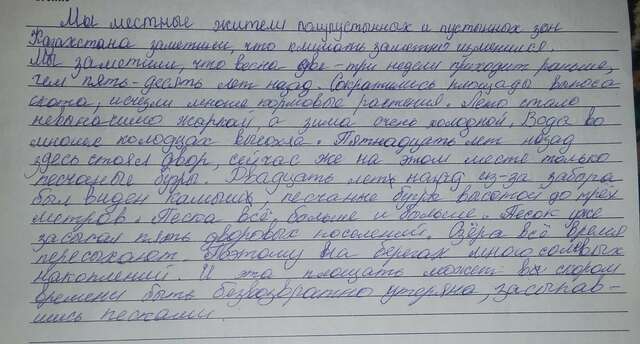 Мы местные жители полупустынных и пустынных зон
Казахстана заметили, что климат заметно изменился.
Мы заметили, что весна две-три недели приходит раньше,
чем пять-десять лет назад. Сократились площады выпаса
скота, исчезли многие кормовые растения. Лето стало
невыносимо жаркой, а зима очень холодной. Вода во
многие колодцах высохла. Пятнадцать лет назад
здесь стоял двор, сейчас же на этом месте только
песчаные бугры. Двадцать лет назад из-за забора
был виден камыш, песчанке бугры высотой до трёх
метров. Песка всё больше и больше. Песок уже
засыпал пять дворовых поселений. Озёра всё время
пересыхают. Поэтому на берегах много солевых
накоплений И эта площать может вы скором
времени быть безвозвратно утеряна, засыпав-
шись песками.